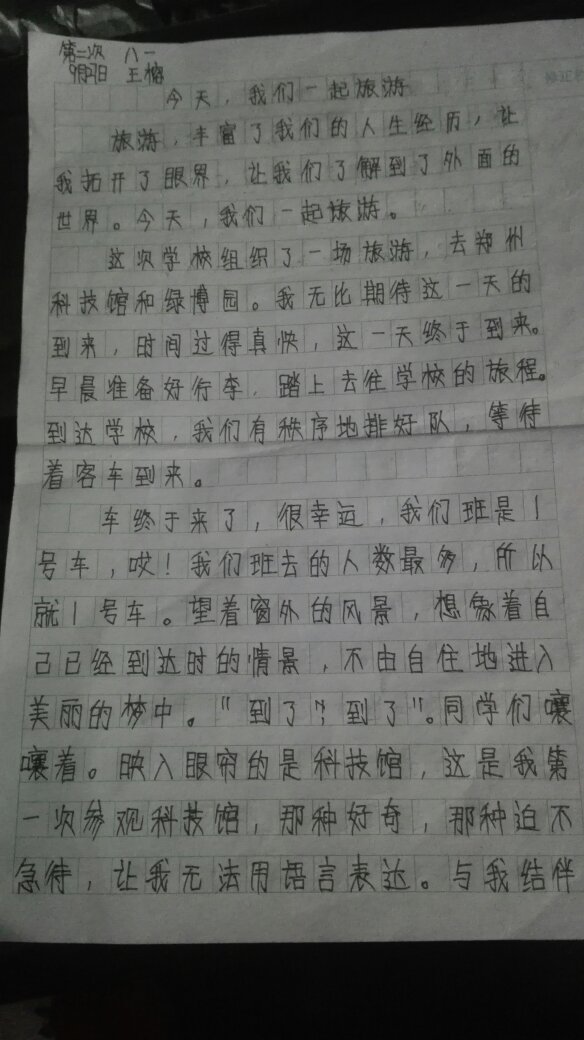 第二次 八一
9月7日 王榕
今天，我们一起旅游
旅游，丰富了我们的人生经历，让
我拓开了眼界，让我们了解到了外面的
世界。今天，我们一起旅游。
这次学校组织了一场旅游，去郑州
科技馆和绿博园。我无比期待这一天的
到来，时间过得真快，这一天终于到来。
早晨准备好行李，踏上去往学校的旅程。
到达学校，我们有秩序地排好队，等待
着客车到来。
车终于来了，很幸运，我们班是1
号车，哎！我们班去的人数最多，所以
就1号车。望着窗外的风景，想象着自
己已经到达时的情景，不由自住地进入
美丽的梦中。"到了？到了"。同学们嚷
嚷着。映入眼帘的是科技馆，这是我第
一次参观科技馆，那种好奇，那种迫不
急待，让我无法用语言表达。与我结伴